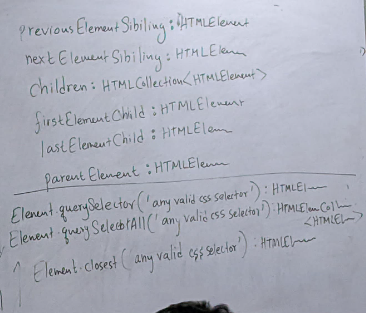 previousElementSibiling : HTMLElement
nextElementSibiling : HTMLElem
children : HTMLCollection<HTMLElement>
firstElementChild : HTMLElement
lastElementChild : HTMLElem
parentElement : HTMLElem
Element.querySelector('any valid css selector') : HTMLEl
Element.querySelectorAll('any valid css selector') : HTMLElemColl
<HTMLEl>
Element.closest('any valid css selector') : HTMLElem